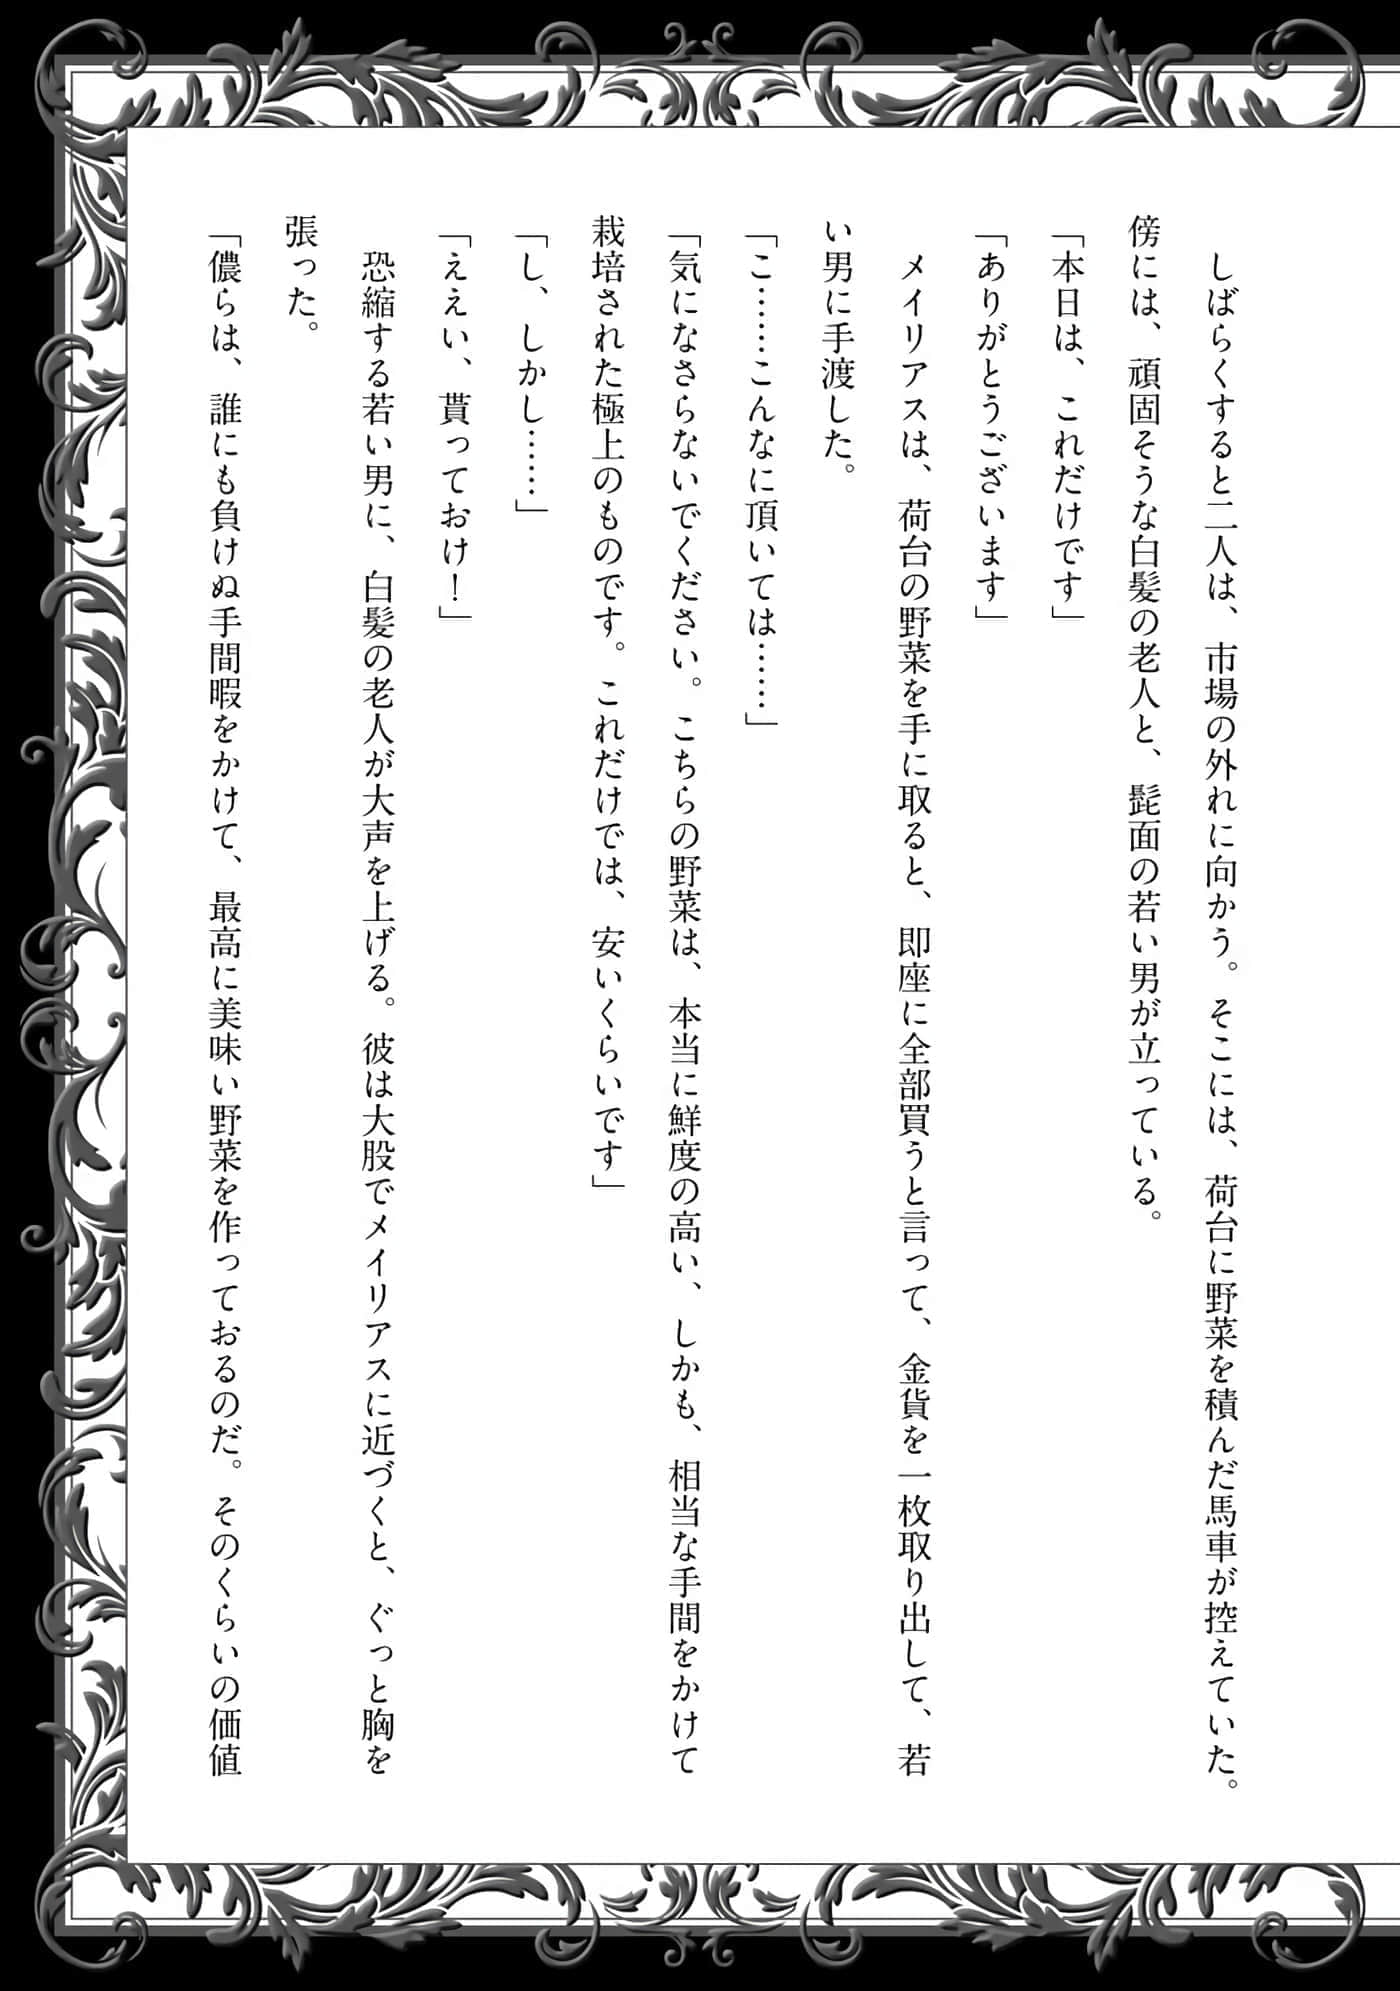 しばらくすると二人は、市場の外れに向かう。そこには、荷台に野菜を積んだ馬車が控えていた。
傍には、頑固そうな白髪の老人と、髭面の若い男が立っている。
「本日は、これだけです」
「ありがとうございます」
メイリアスは、荷台の野菜を手に取ると、即座に全部買うと言って、金貨を一枚取り出して、若
い男に手渡した。
「こ……こんなに頂いては……」
「気になさらないでください。こちらの野菜は、本当に鮮度の高い、しかも、相当な手間をかけて
栽培された極上のものです。これだけでは、安いくらいです」
「し、しかし……」
「ええい、貰っておけ！」
恐縮する若い男に、白髪の老人が大声を上げる。彼は大股でメイリアスに近づくと、ぐっと胸を
張った。
「儂らは、誰にも負けぬ手間暇をかけて、最高に美味い野菜を作っておるのだ。そのくらいの価値